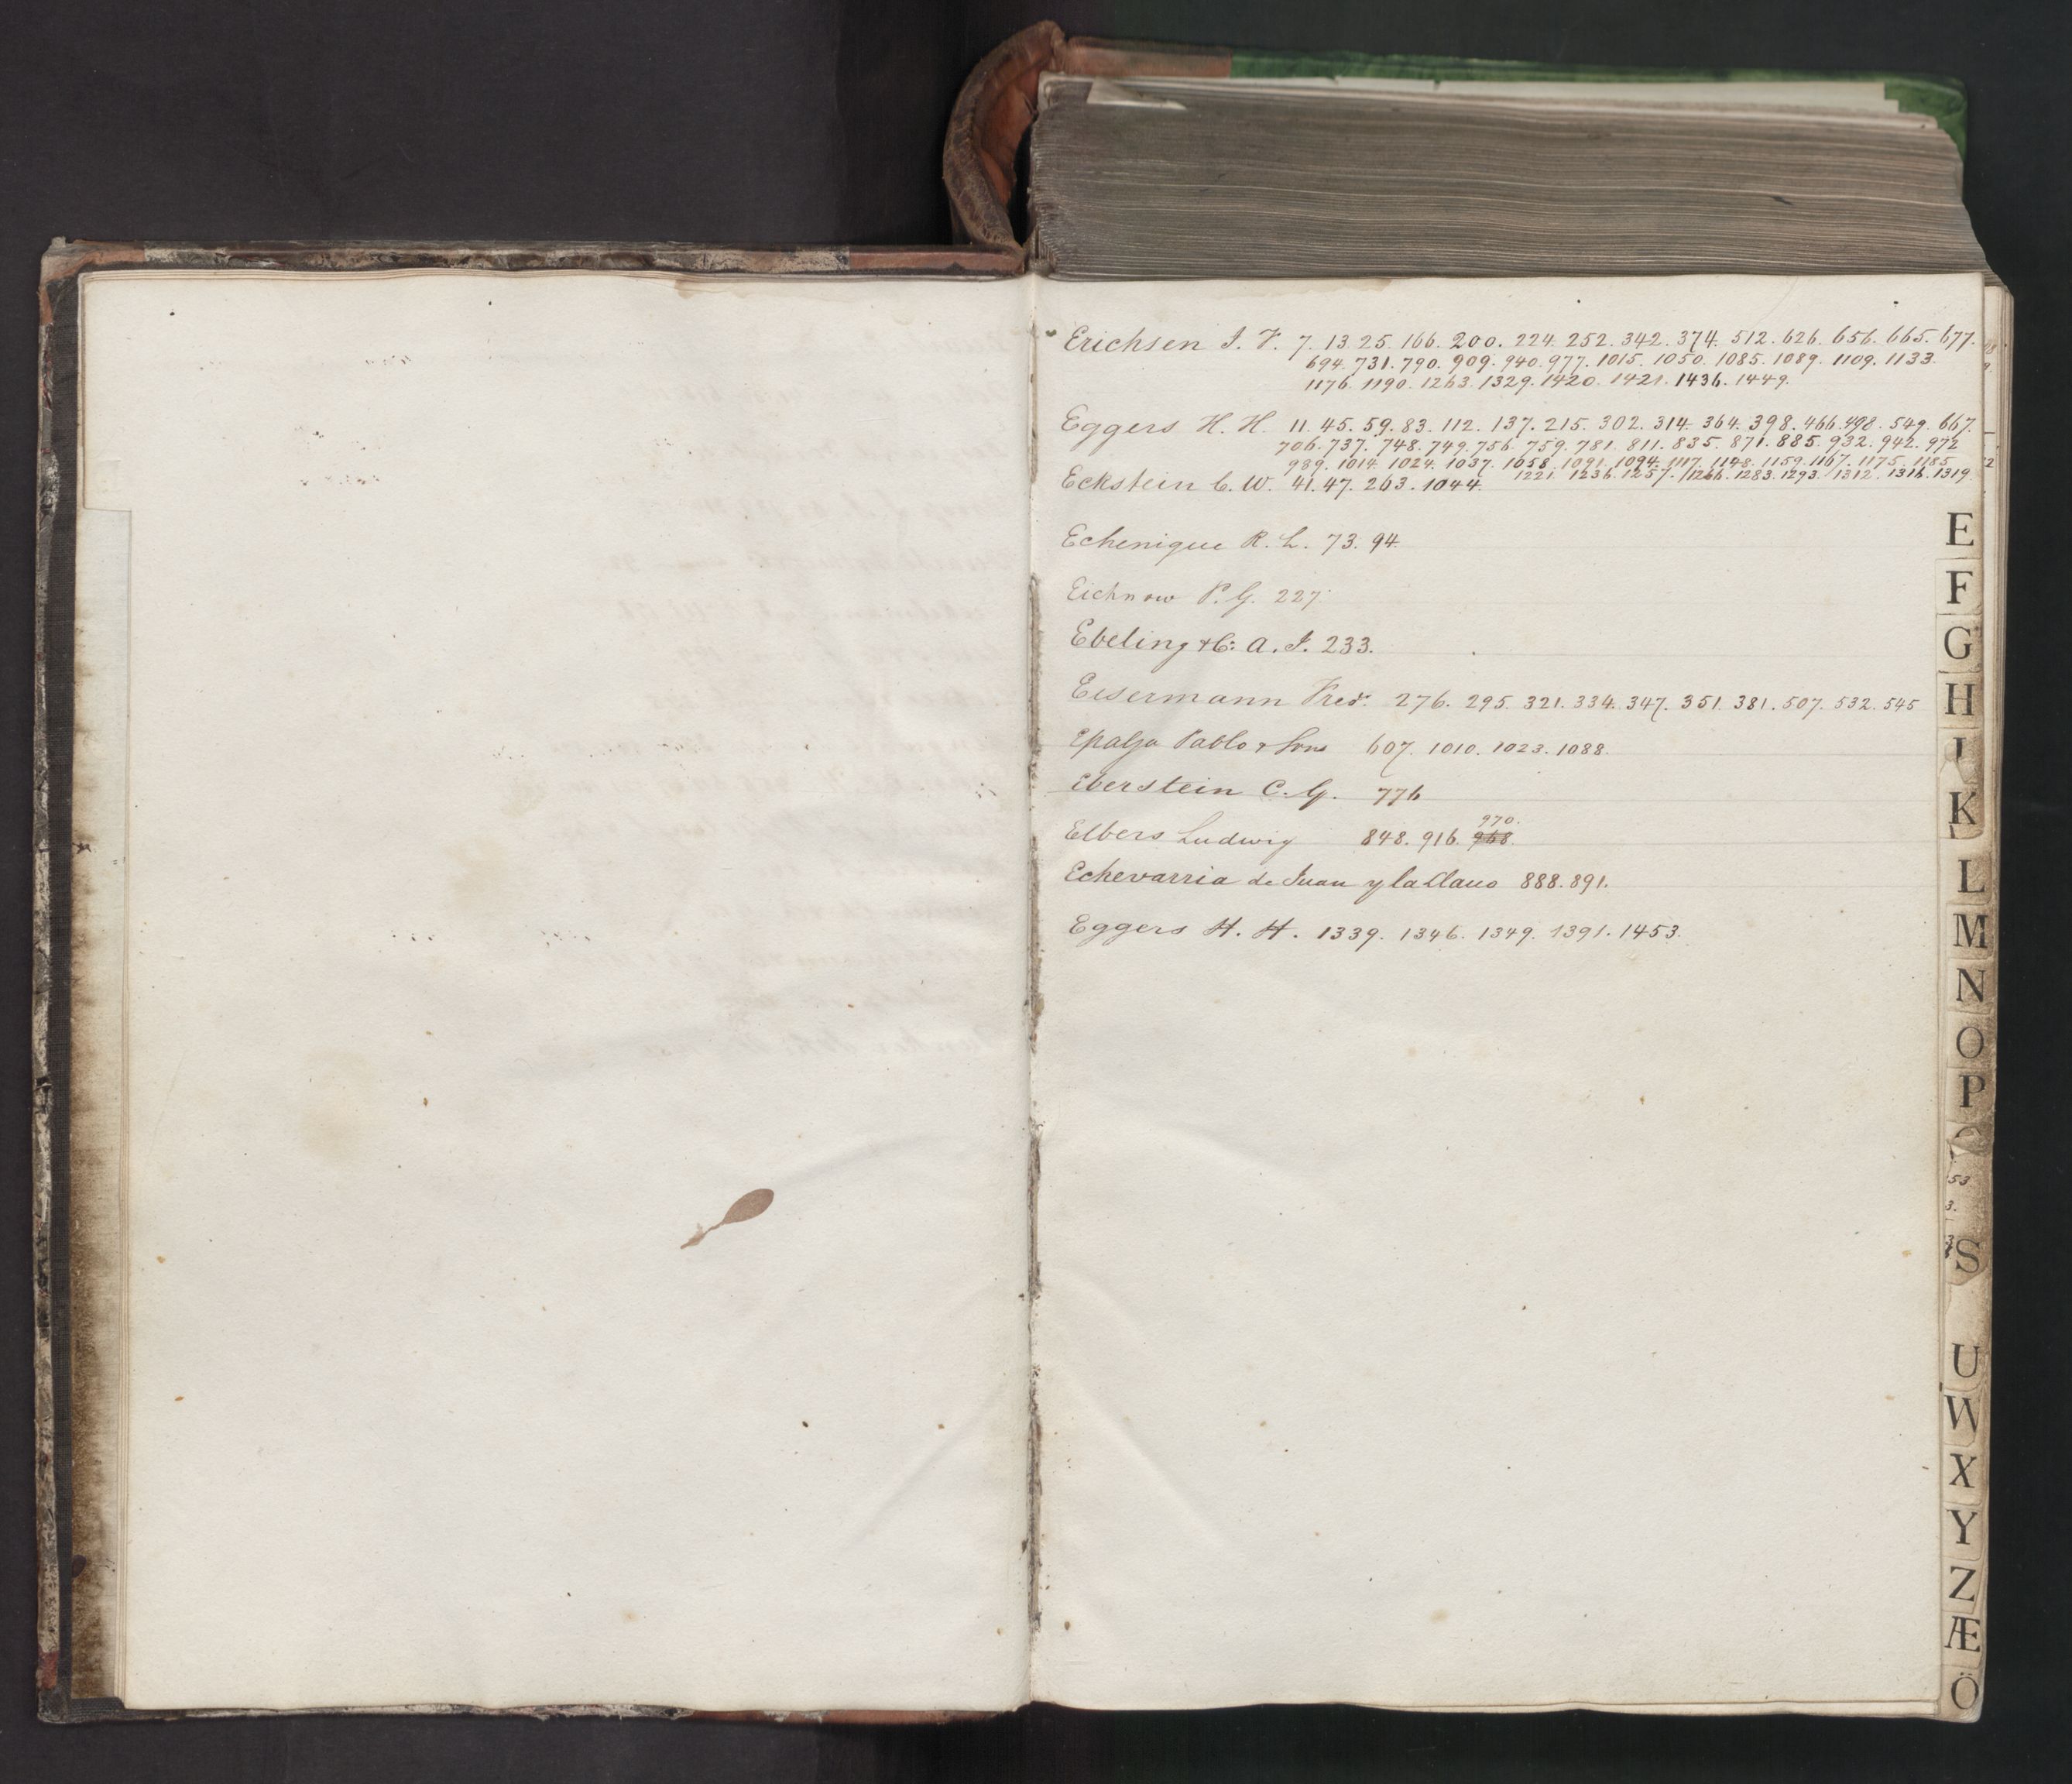 Erichsen I. F. 7. 13. 25. 166. 200. 224. 252. 342. 374. 512. 626. 656. 665. 677.
694. 731. 790. 909. 940. 977. 1015. 1050. 1085. 1089. 1109. 1133.
1176. 1190. 1263. 1329. 1420. 1421. 1436. 1449.
Eggers H. H. 11. 45. 59. 83. 112. 137. 215. 302. 314. 364. 398. 466. 498. 549. 667.
706. 737. 748. 749. 756. 759. 781. 811. 835. 871. 885. 932. 942. 972
989. 1014. 1024. 1037. 1058. 1091. 1094. 1117. 1148. 1159. 1167. 1175. 1185
1221. 1236. 1257. 1266. 1283. 1293. 1312. 1316. 1319.
Eckstein C. W. 41. 47. 263. 1044.
Echenique R. L. 73. 94.
Eichnow P. G. 227.
Ebeling & Co: A. I. 233.
Eisermann Fred. 276. 295. 321. 334. 347. 351. 381. 507. 532. 545
Epalza Pablo & Sons 607. 1010. 1023. 1088.
Eberstein C. G. 776
970.
Elbers Ludwig 848. 916. 968.
Echevarria de Juan y la Llano 888. 891.
Eggers H. H. 1339. 1346. 1349. 1391. 1453.
E
F
G
H
I
K
L
M
N
O
P
53
3.
S
U
W
X
Y
Z
Æ
Ö